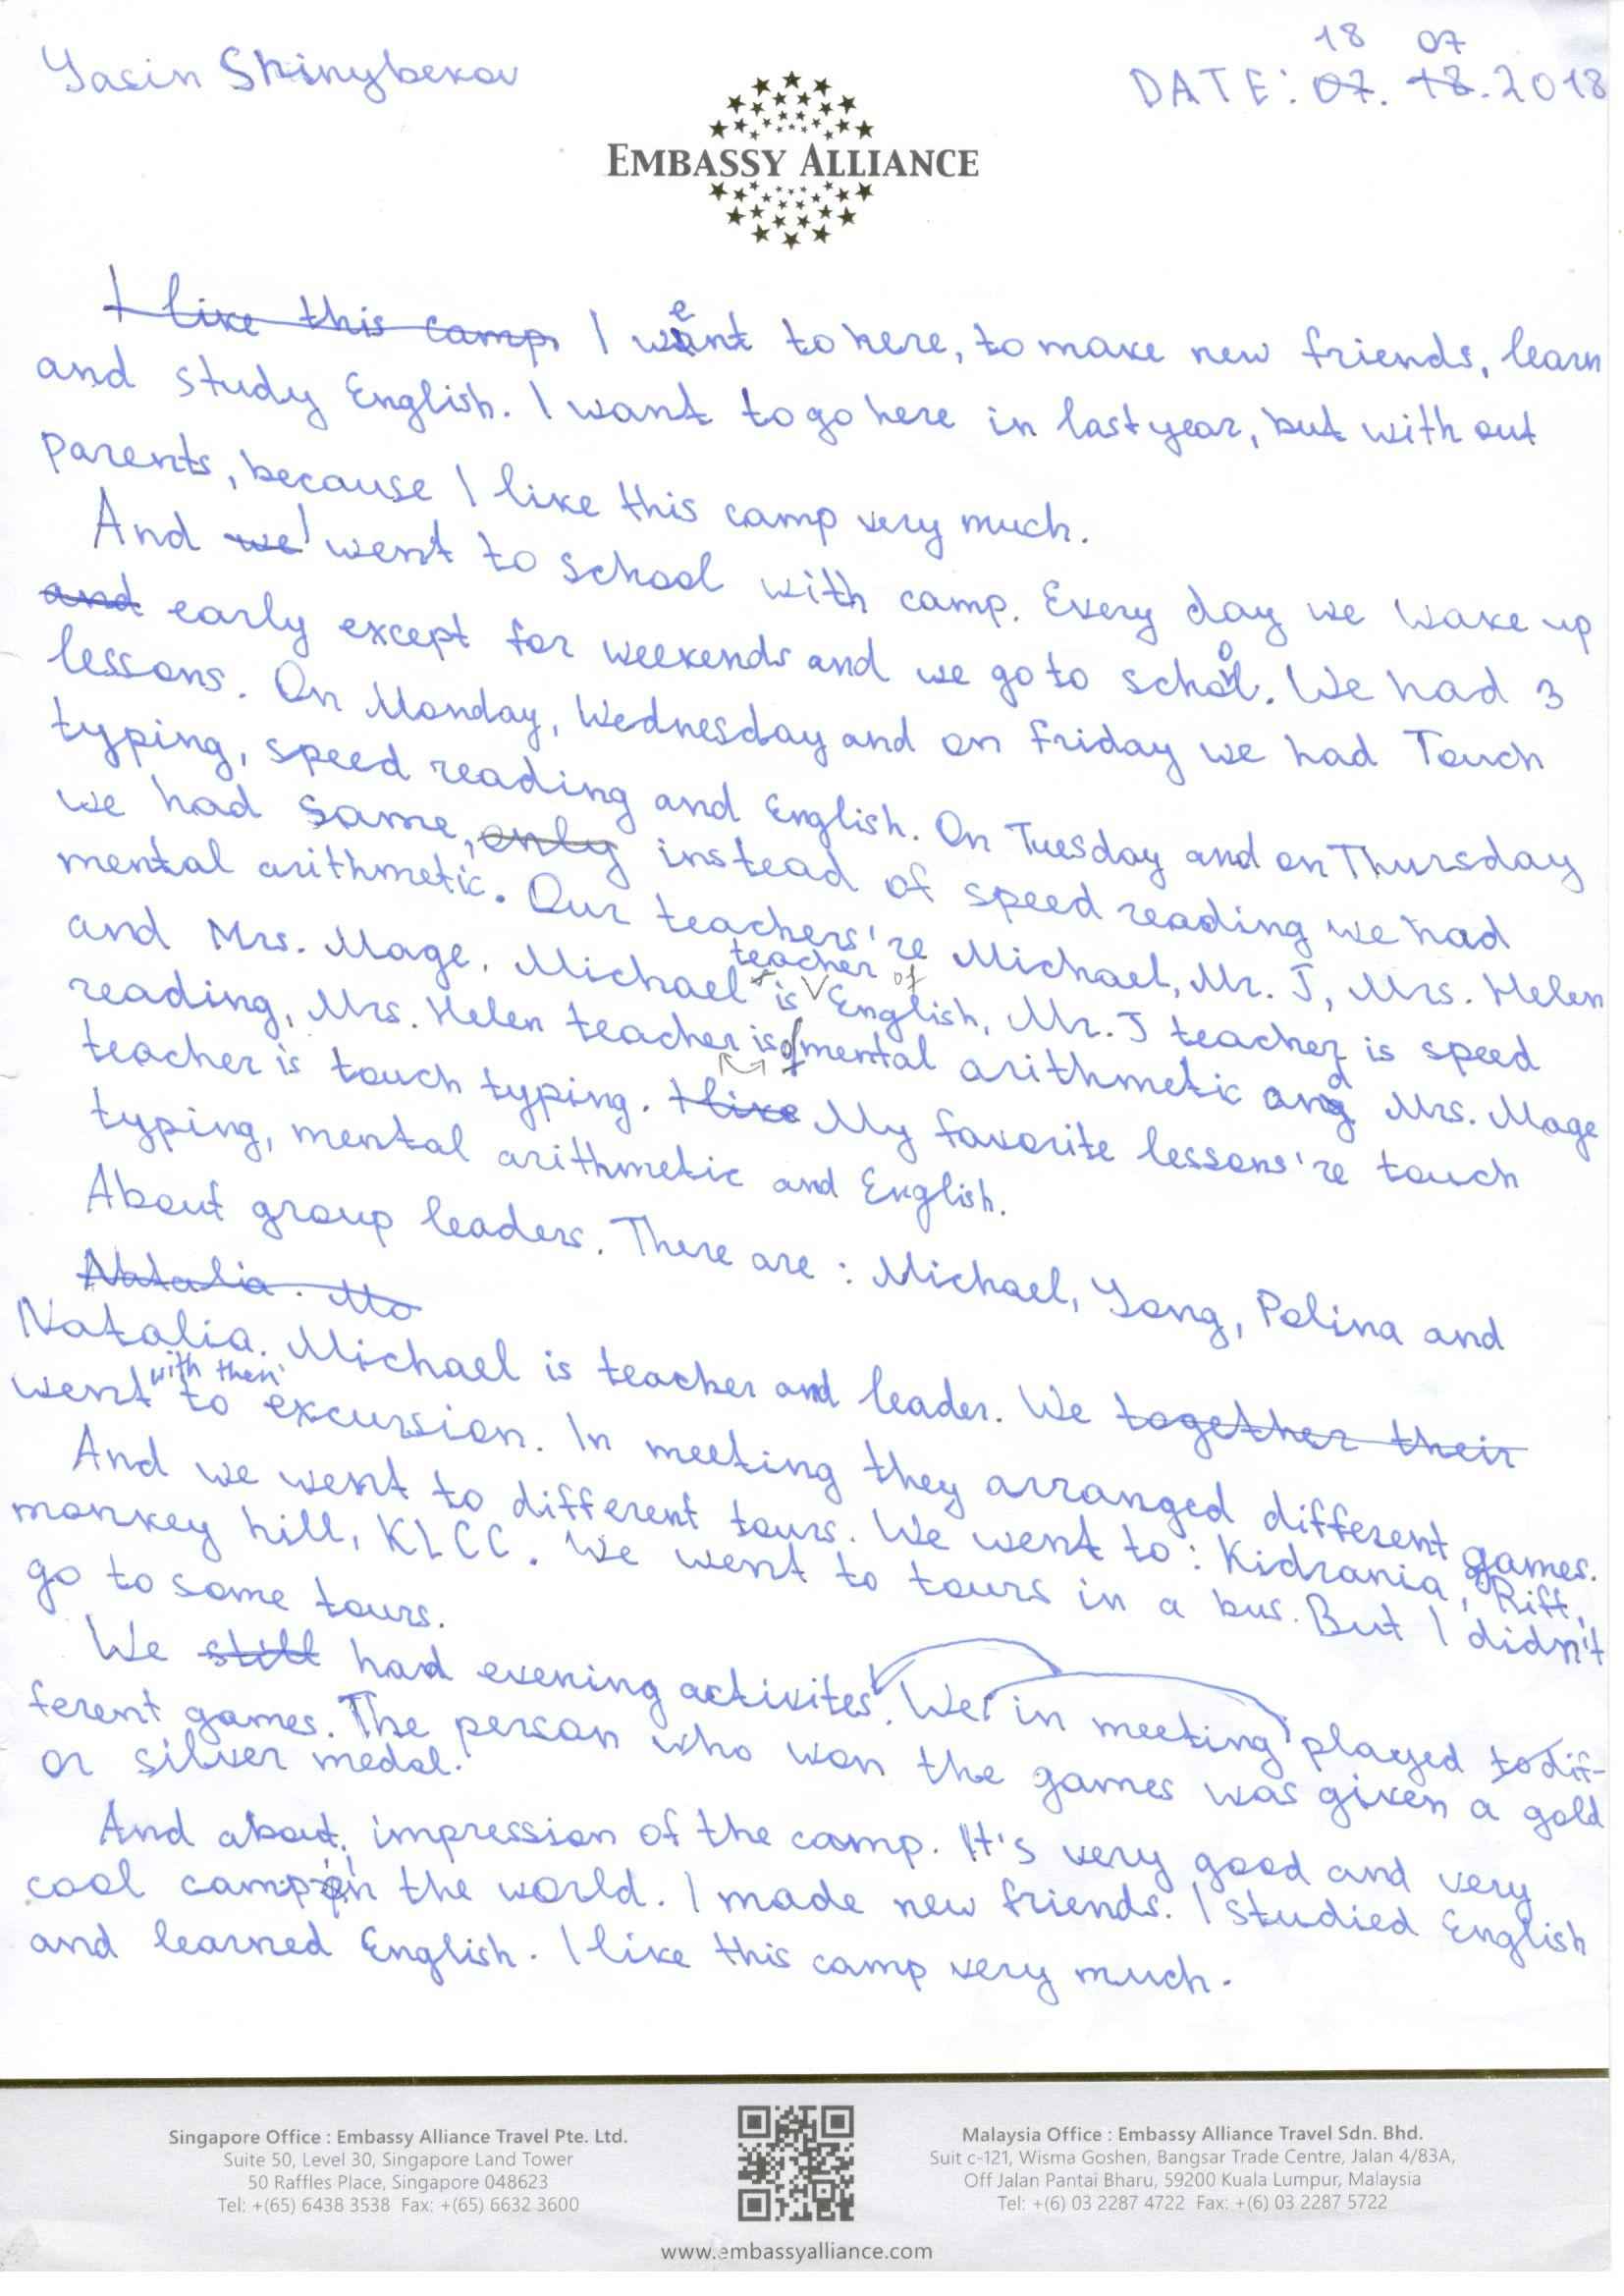 Yasin Shinybekov
18 07
DATE: 07. 18. 2018
EMBASSY ALLIANCE
I like this camp. I went to here, to make new friends, learn
and study English. I want to go here in last year, but with out
parents, because I like this camp very much.
And we I went to school with camp. Every day we wake up
and early except for weekends and we go to school. We had 3
lessons. On Monday, Wednesday and on Friday we had Touch
typing, speed reading and English. On Tuesday and on Thursday
we had same, only instead of speed reading we had
mental arithmetic. Our teachers're Michael, Mr. J, Mrs. Helen
and Mrs. Mage. Michael is teacher of English, Mr. J teacher is speed
reading, Mrs. Helen teacher is of mental arithmetic and Mrs. Mage
teacher is touch typing. I like My favorite lessons're touch
typing, mental arithmetic and English.
About group leaders. There are: Michael, Yong, Polina and
Natalia. Mo
Natalia. Michael is teacher and leader. We together their
went with them to excursion. In meeting they arranged different games.
And we went to different tours. We went to: Kidzania, Rift,
monkey hill, KLCC. We went to tours in a bus. But I didn't
go to some tours.
We still had evening activites. We in meeting played to dif-
ferent games. The person who won the games was given a gold
or silver medal.
And about impression of the camp. It's very good and very
cool camp in the world. I made new friends. I studied English
and learned English. I like this camp very much.
Singapore Office : Embassy Alliance Travel Pte. Ltd.
Suite 50, Level 30, Singapore Land Tower
50 Raffles Place, Singapore 048623
Tel: +(65) 6438 3538 Fax: +(65) 6632 3600
Malaysia Office : Embassy Alliance Travel Sdn. Bhd.
Suit c-121, Wisma Goshen, Bangsar Trade Centre, Jalan 4/83A,
Off Jalan Pantai Bharu, 59200 Kuala Lumpur, Malaysia
Tel: +(6) 03 2287 4722 Fax: +(6) 03 2287 5722
www.embassyalliance.com